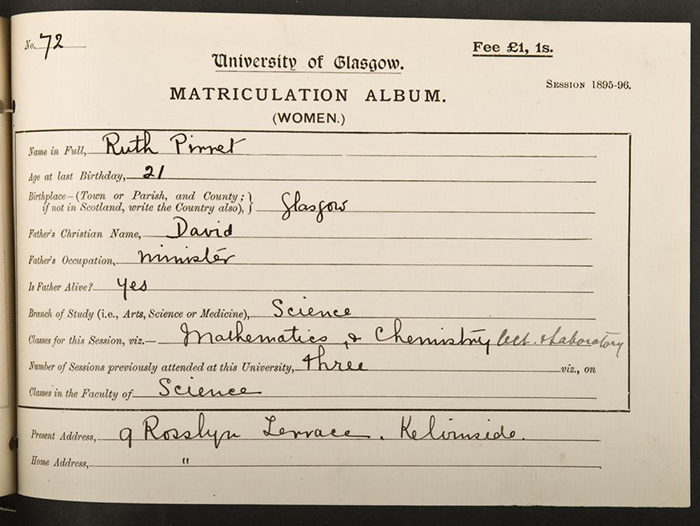 No. 72
Fee £1, 1s.
University of Glasgow.
Session 1895-96.
MATRICULATION ALBUM.
(WOMEN.)
Name in Full, Ruth Pirret
Age at last Birthday, 21
Birthplace—(Town or Parish, and County; if not in Scotland, write the Country also), Glasgow
Father's Christian Name, David
Father's Occupation, Minister
Is Father Alive? Yes
Branch of Study (i.e., Arts, Science or Medicine), Science
Classes for this Session, viz.— Mathematics, & Chemistry Lect. & Laboratory
Number of Sessions previously attended at this University, three viz., on
Classes in the Faculty of Science
Present Address, 9 Rosslyn Terrace. Kelvinside.
Home Address, "